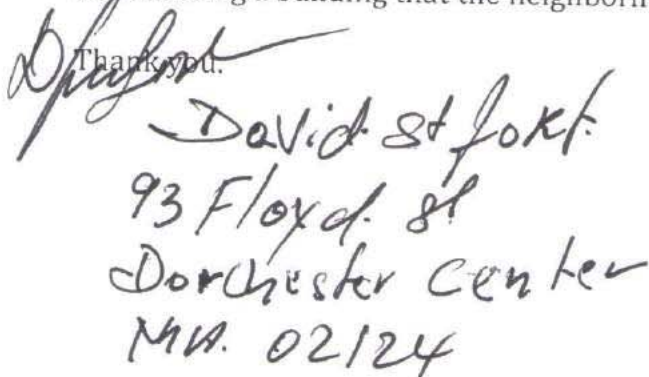 a building that the neighborh
Thank you.
David St fort.
93 Floyd. St
Dorchester Center
MA. 02124